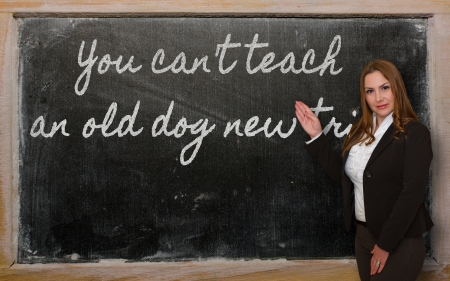 You can't teach
an old dog new tri